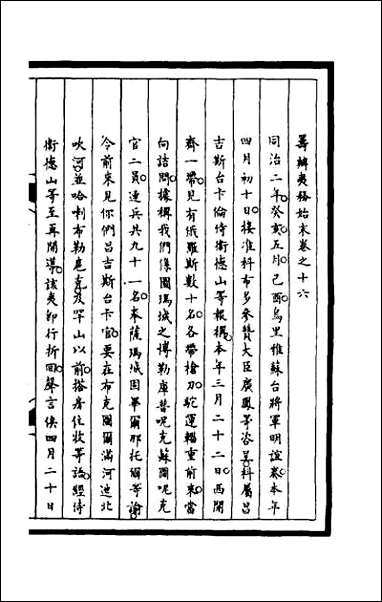 籌辦夷務始末卷之十六
同治二年癸亥五月己酉烏里雅蘇台將軍明誼奏本年
四月初十日接准科布多參贊大臣廣鳳等咨呈科屬昌
吉斯台卡倫侍衛德山等報稱本年三月二十二日西開
齊一帶見有俄羅斯數十名各帶槍刀駝運輜重前來當
向詰問據稱我們係圖瑪城之博勒庫普呢克蘇爾呢克
官二員連兵共九十一名奉薩瑪城固畢爾那托爾等諭
令前來見你們昌吉斯台卡官要在布克圖爾滿河迪北
吹河並哈喇布勒扈克及罕山以前搭房住牧等論經侍
衛德山等至再開導該夷卽行折回聲言俟四月二十日